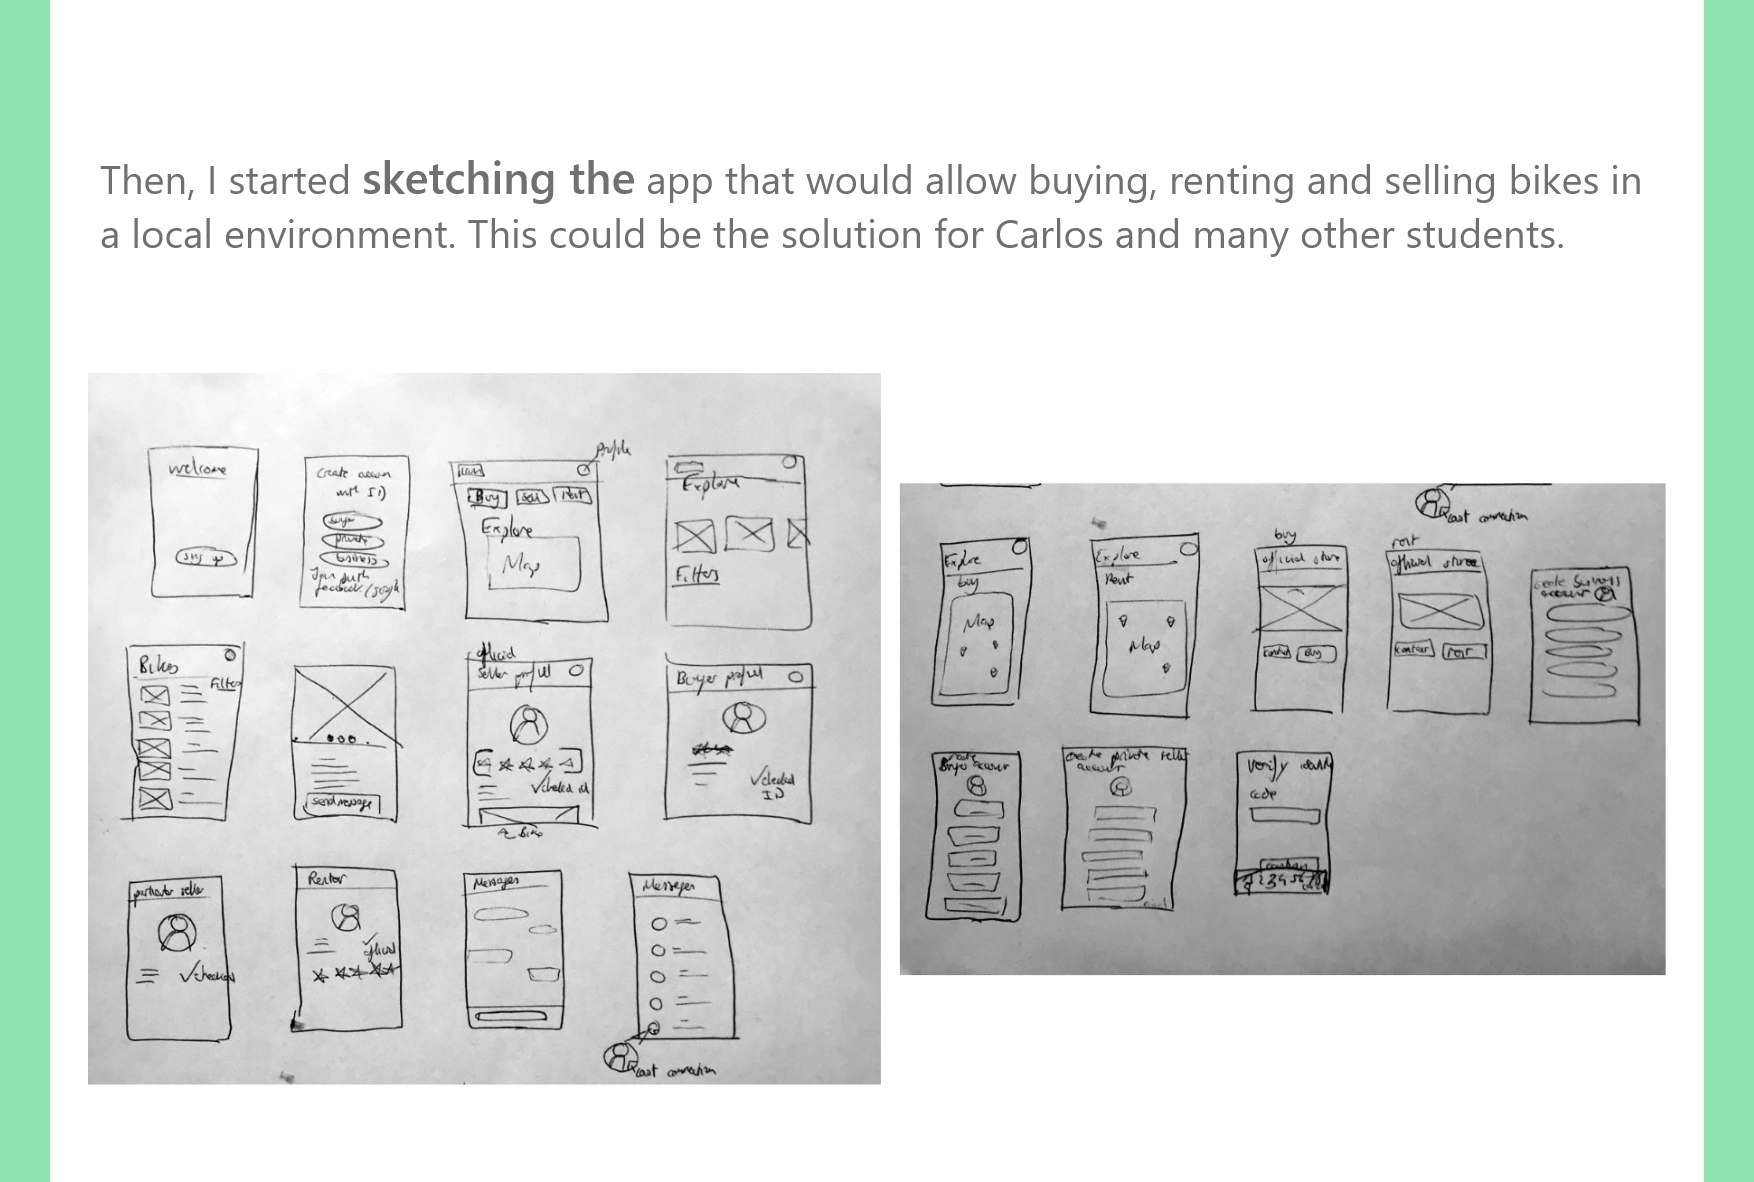 Then, I started sketching the app that would allow buying, renting and selling bikes in
a local environment. This could be the solution for Carlos and many other students.
welcome
sing up
Create accoun
with ID
private
business
Join with
facebook/google
Profile
Buy
Sell
rent
Explore
Map
Explore
Filters
Bikes
Filter
send message
official
Seller profil
✓checked id
Buyer profil
✓checked
ID
particular seller
✓checked
Rentor
✓official
Messages
Messages
last connection
last connection
Explore
buy
Map
Explore
Rent
Map
buy
official store
contact
Buy
rent
official store
contact
rent
create business
account
create
Buyer account
create private seller
account
Verify identity
code